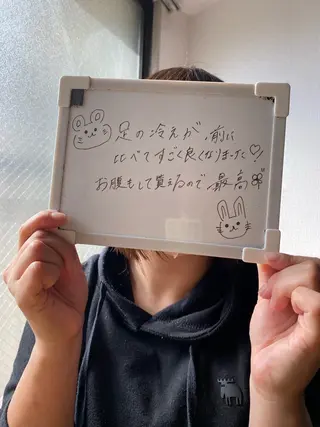 足の冷えが、前に
比べてすごく良くなりました♡
お腹もして貰えるので最高